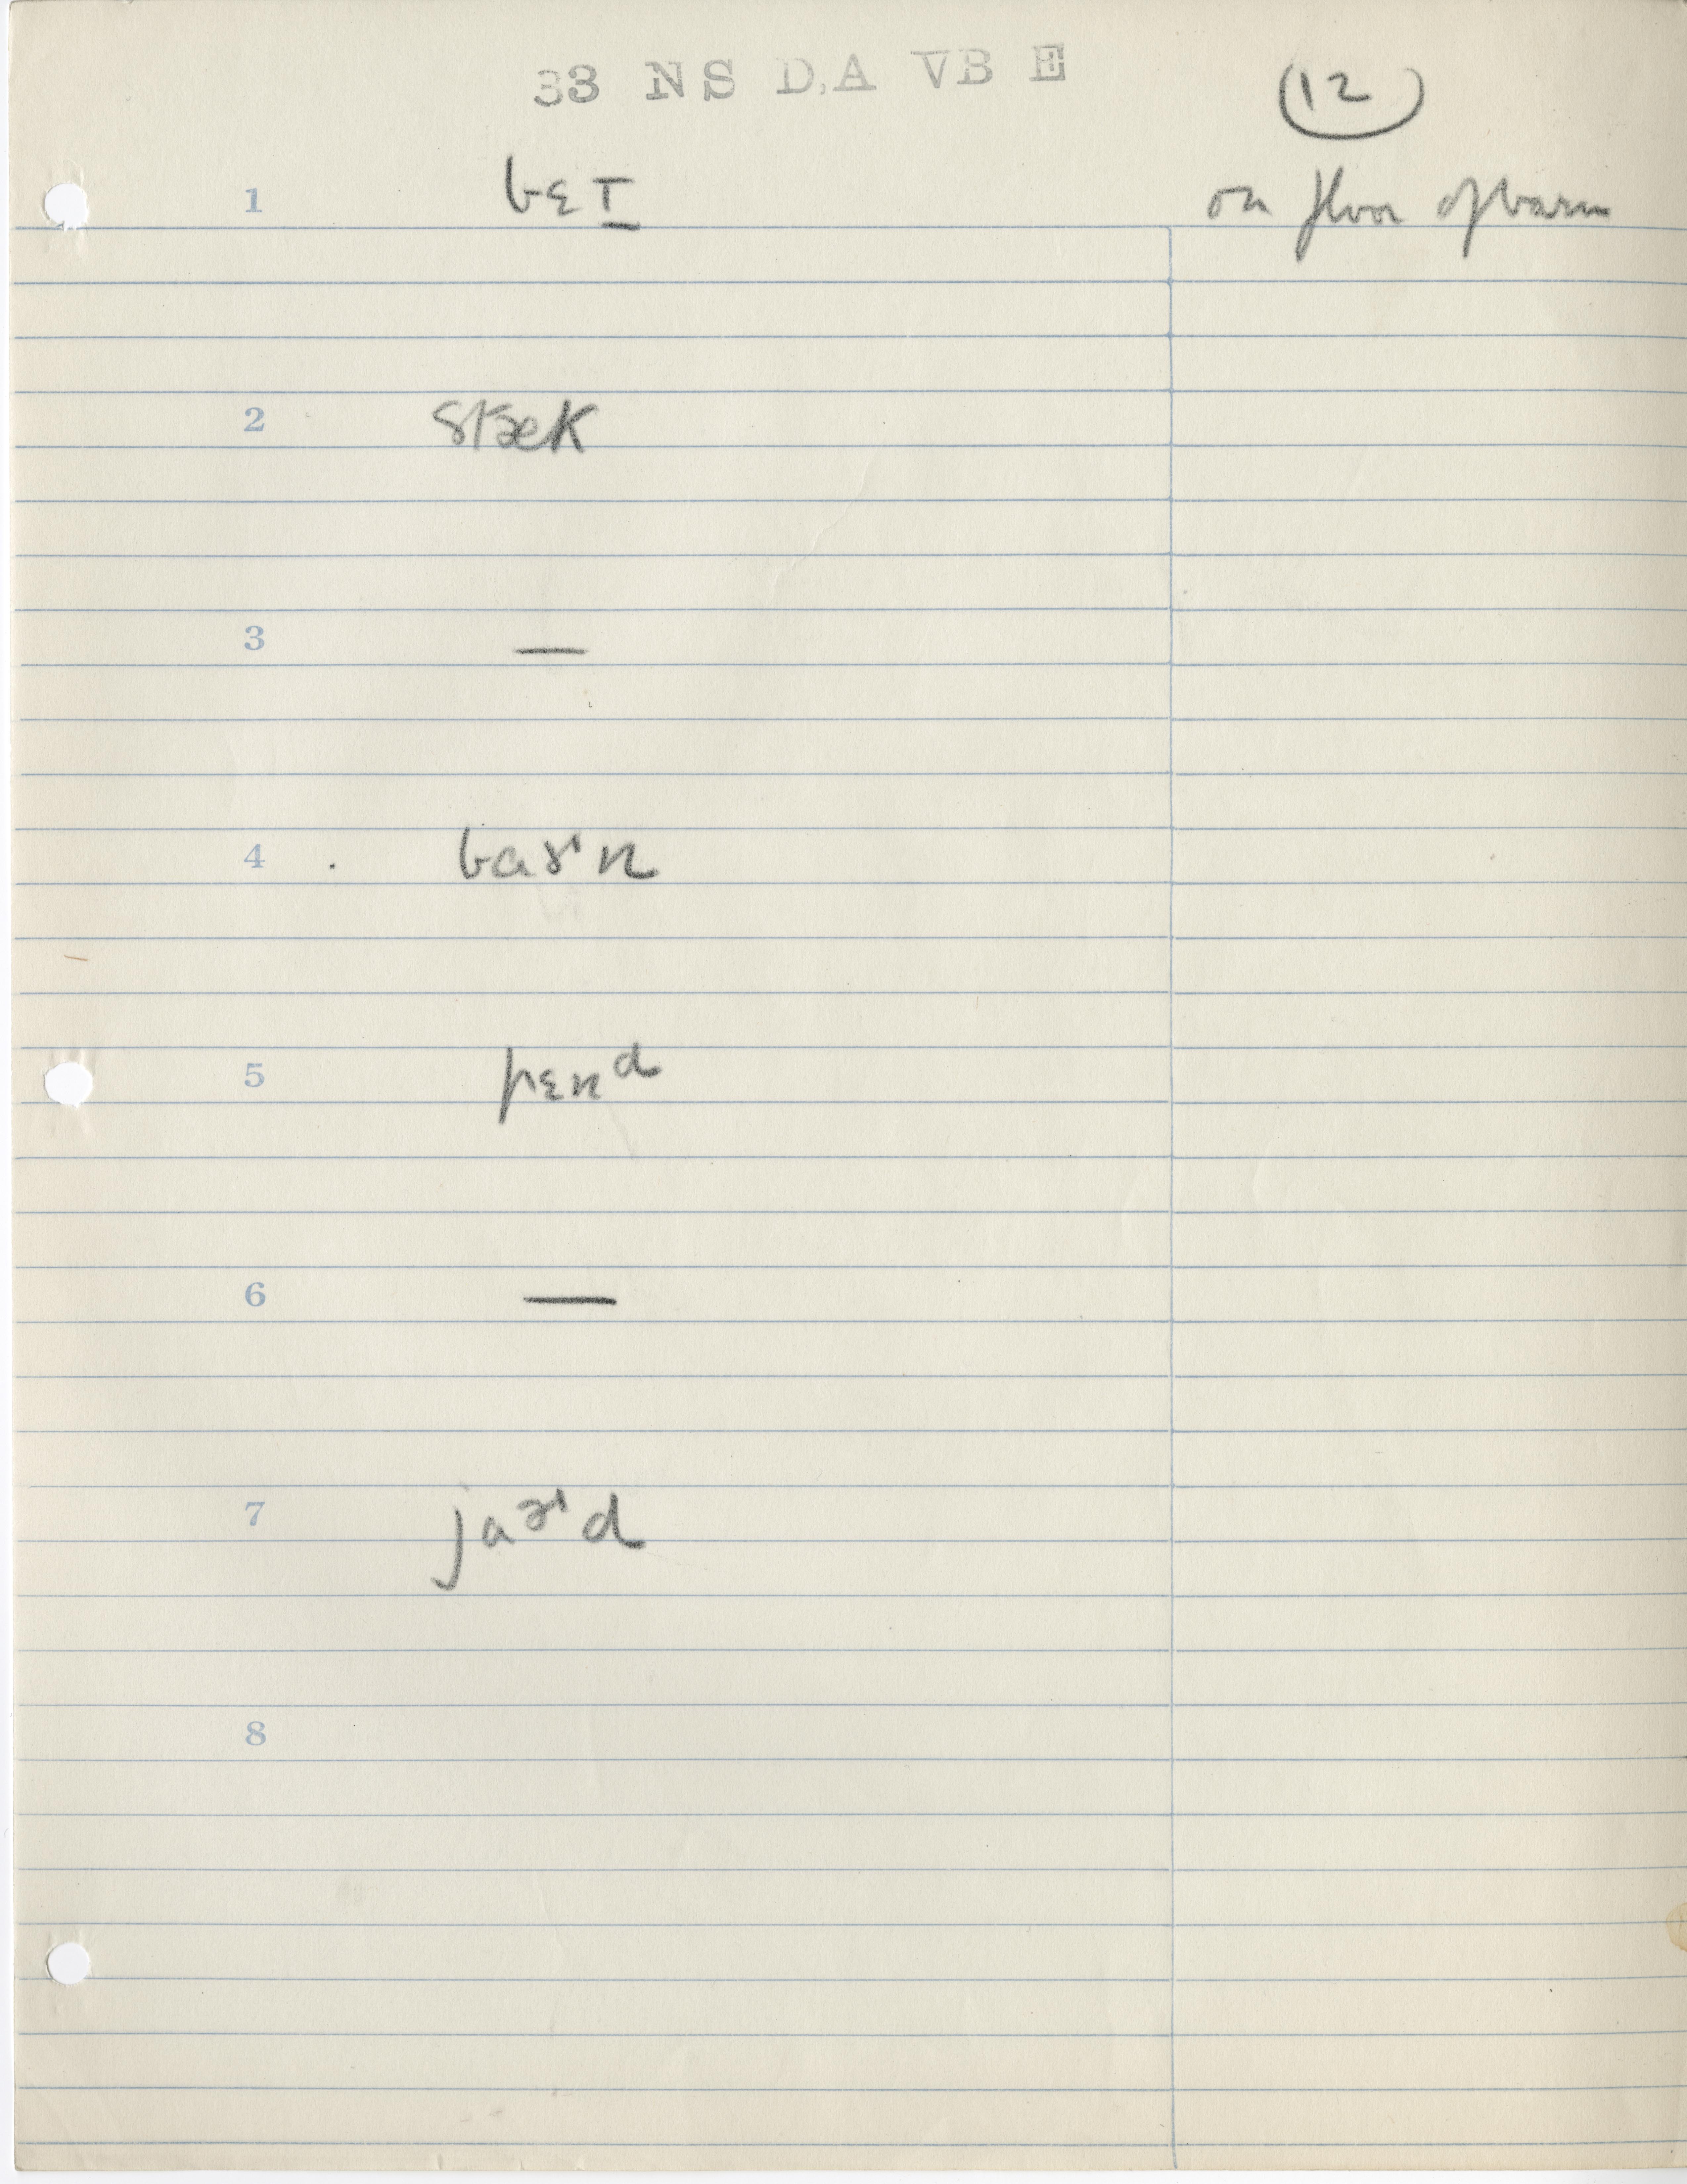 33 NS D,A VB E
(12)
1 bɛɪ on floor of barn
2 stæk
3 —
4 baɚn
5 pɛnᵈ
6 —
7 jaᵊʳd
8